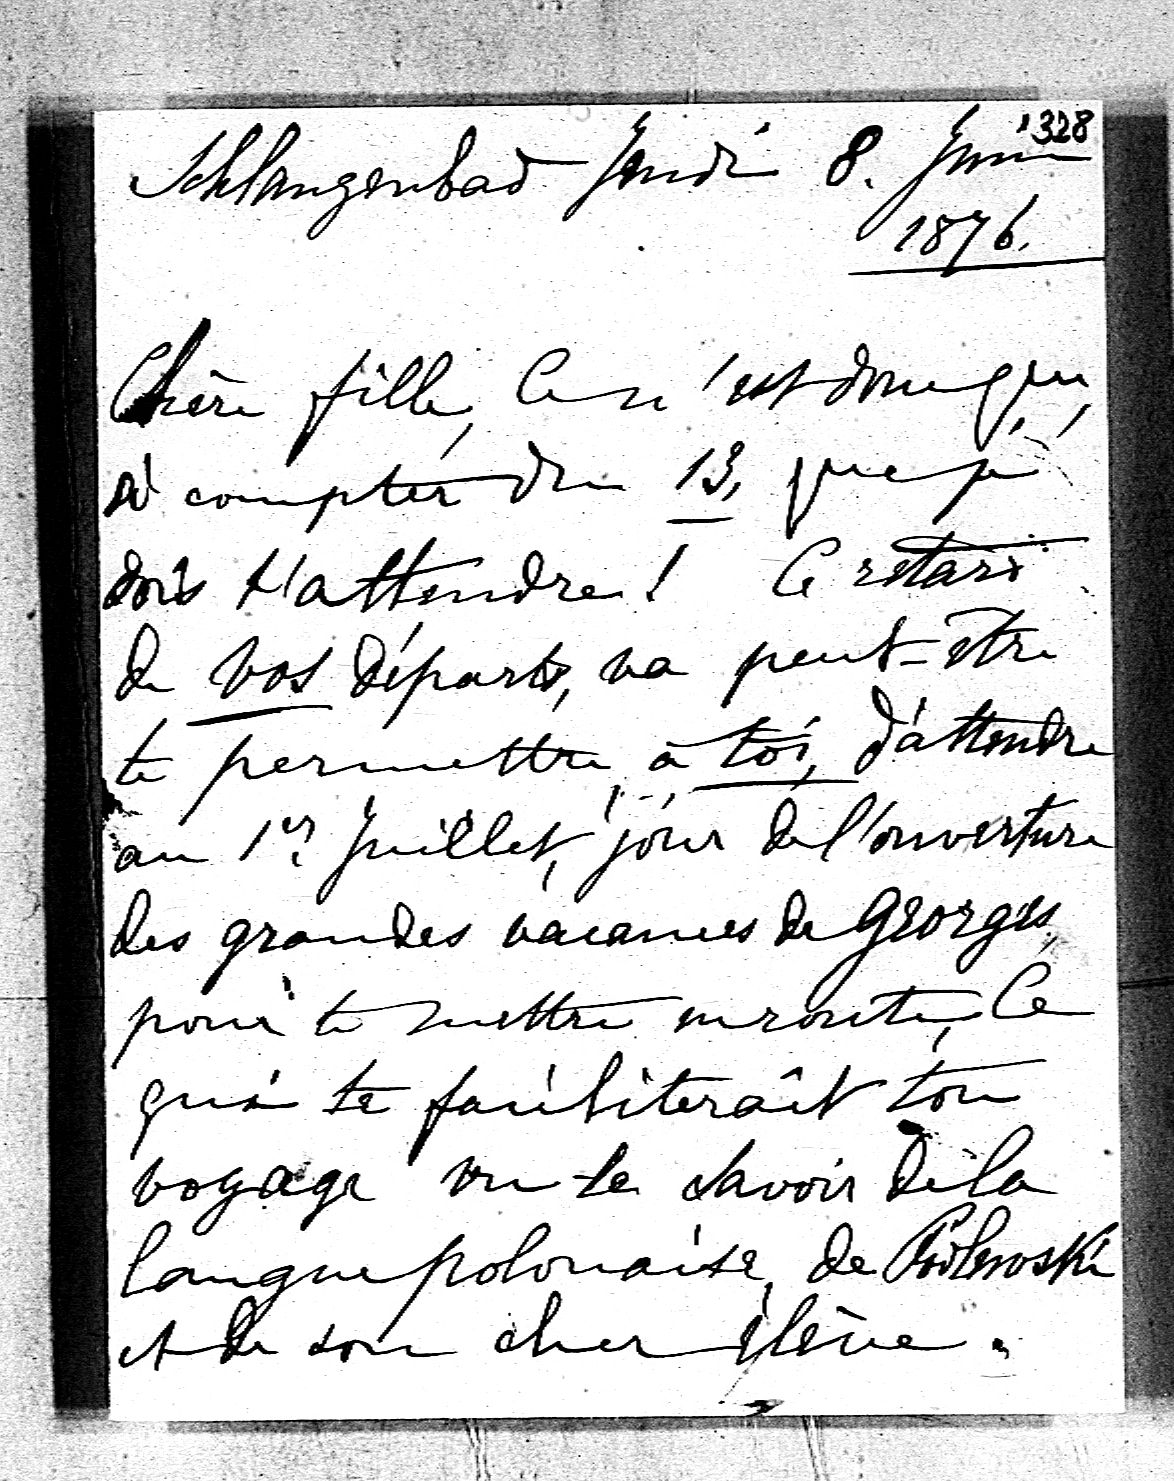 328
Schlangenbad Jeudi 8. Juin
1876.
Chère fille, Ce n'est donc qu'
à compter du 13, que je
dois t'attendre! Ce retard
de vos départs, va peut-être
te permettre, à toi, d'attendre
au 1er Juillet, jour de l'ouverture
des grandes vacances de Georges,
pour te mettre en route, Ce
qui te faciliterait ton
voyage vu le savoir de la
langue polonaise, de
et de son cher élève.